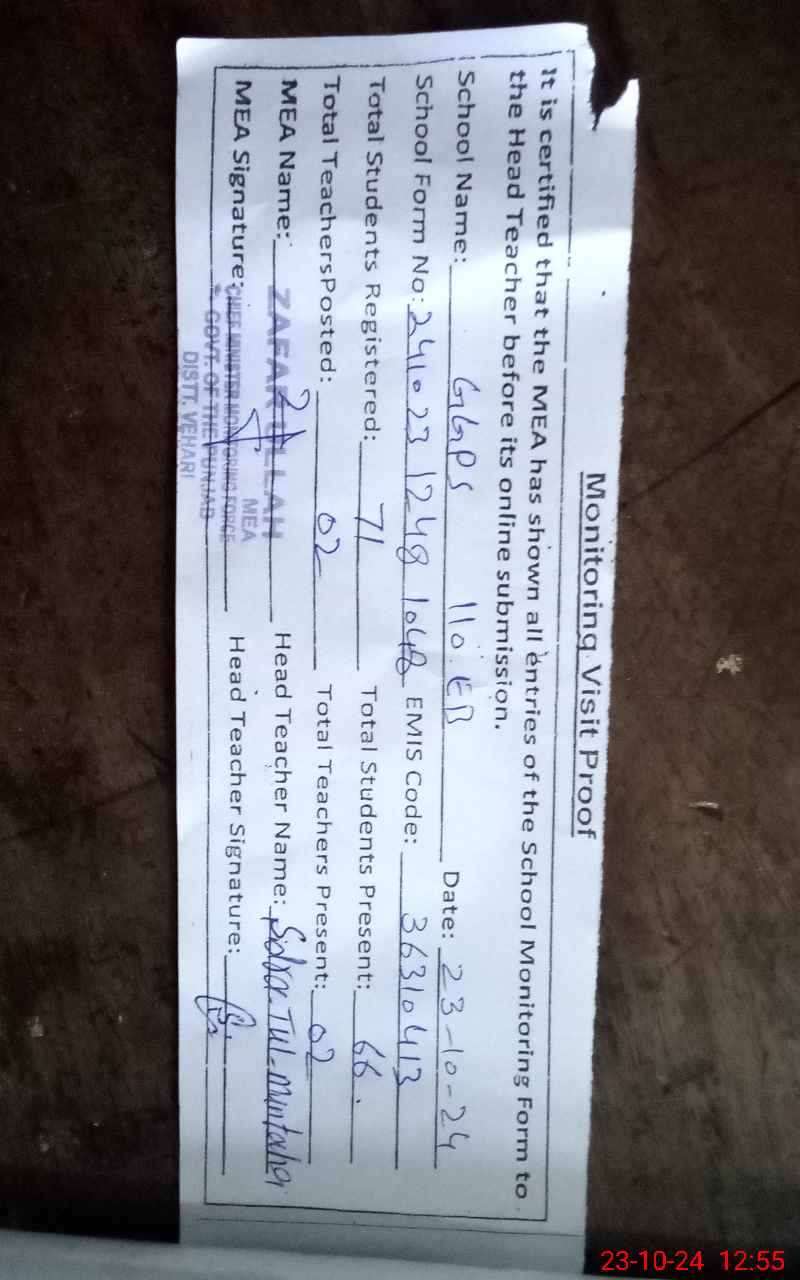 Monitoring Visit Proof
It is certified that the MEA has shown all entries of the School Monitoring Form to
the Head Teacher before its online submission.
School Name: GGPS 110.EB Date: 23-10-24
School Form No: 241023 1248 1048 EMIS Code: 36310413
Total Students Registered: 71 Total Students Present: 66.
Total TeachersPosted: 02 Total Teachers Present: 02
MEA Name: ZAFAR ULLAH Head Teacher Name: Sidra-Tul-Muntaha
MEA
MEA Signature: Head Teacher Signature:
CHIEF MINISTER MONITORING FORCE
GOVT. OF THE PUNJAB
DISTT. VEHARI
23-10-24 12:55